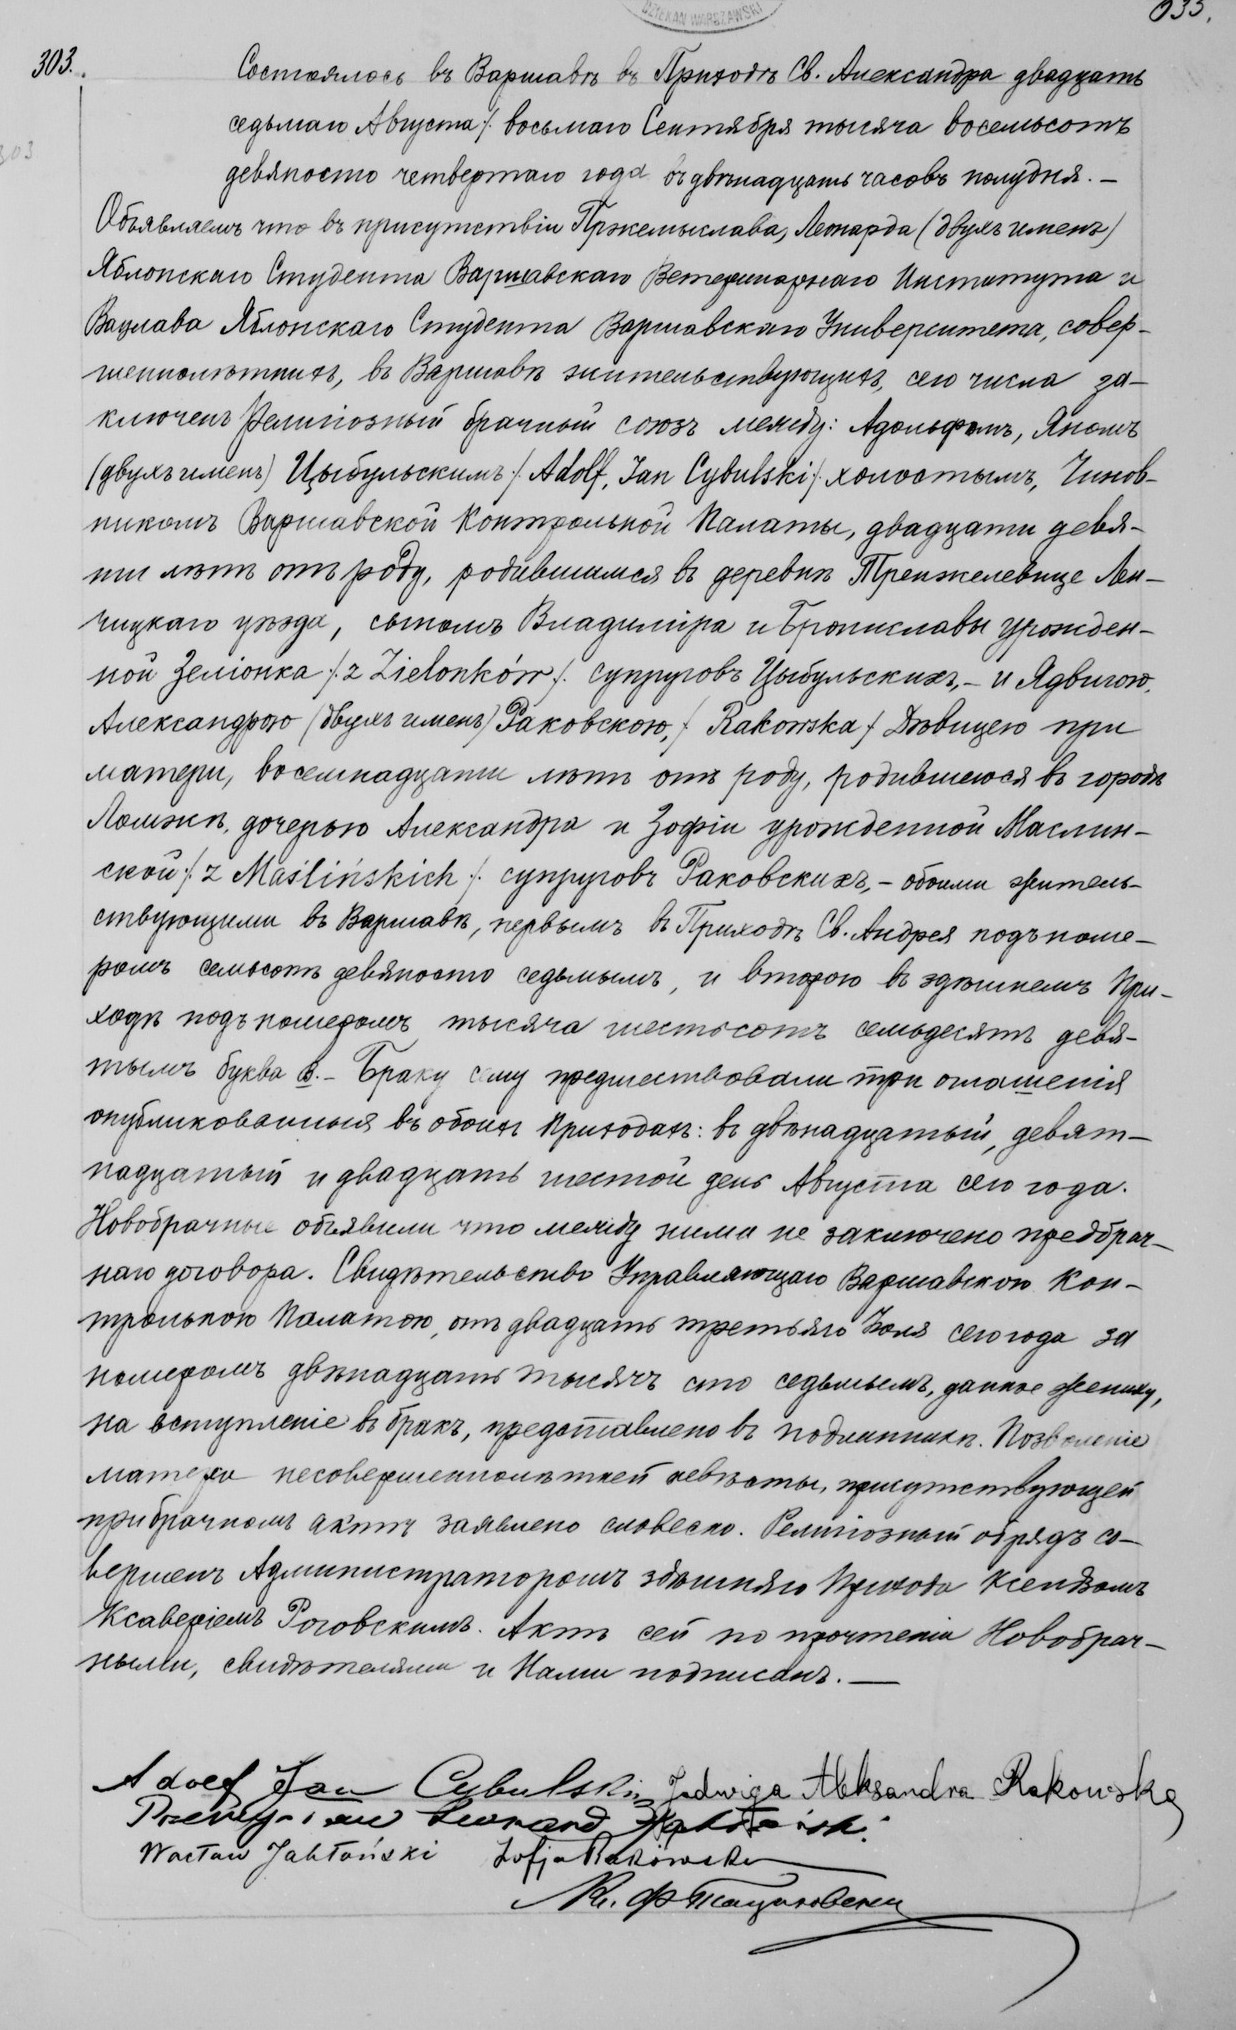 DZIEKAN WARSZAWSKI
633.
303.
Состоялось въ Варшавѣ въ Приходѣ Св. Александра двадцать
303
седьмаго Августа /. восьмаго Сентября тысяча восемьсотъ
девяносто четвертаго года въ двѣнадцать часовъ полудня. —
Объявляемъ что въ присутствіи Пржемыслава, Леонарда (двухъ именъ)
Яблонскаго Студента Варшавскаго Ветеринарнаго Института и
Вацлава Яблонскаго Студента Варшавскаго Университета, совер-
шеннолѣтнихъ, въ Варшавѣ жительствующихъ, сего числа за-
ключенъ религіозный брачный союзъ между: Адольфомъ, Яномъ
(двухъ именъ) Цыбульскимъ /. Adolf, Jan Cybulski /. холостымъ, Чинов-
никомъ Варшавской Контрольной Палаты, двадцати девя-
ти лѣтъ отъ роду, родившимся въ деревнѣ Тренжелевице Лен-
чицкаго уѣзда, сыномъ Владиміра и Брониславы урожден-
ной Зеліонка /. z Zielonków /. супруговъ Цыбульскихъ, — и Ядвигою,
Александрою (двухъ именъ) Раковскою, / Rakowska / Дѣвицею при
матери, восемнадцати лѣтъ отъ роду, родившеюся въ городѣ
Ломжѣ, дочерью Александра и Зофіи урожденной Маслин-
ской /. z Maślińskich /. супруговъ Раковскихъ, — обоими житель-
ствующими въ Варшавѣ, первымъ въ Приходѣ Св. Андрея подъ номе-
ромъ семьсотъ девяносто седьмымъ, и второю въ здѣшнемъ При-
ходѣ подъ номеромъ тысяча шестьсотъ семьдесятъ девя-
тымъ буква в. — Браку сему предшествовали три оглашенія
опубликованныя въ обоихъ Приходахъ: въ двѣнадцатый, девят-
надцатый и двадцать шестой день Августа сего года.
Новобрачные объявили что между ними не заключено предбрач-
наго договора. Свидѣтельство Управляющаго Варшавскою Кон-
трольною Палатою, отъ двадцать третьяго Іюля сего года за
номеромъ двѣнадцать тысячъ сто седьмымъ, данное жениху,
на вступленіе въ бракъ, представлено въ подлинникѣ. Позволеніе
матери несовершеннолѣтней невѣсты, присутствующей
при брачномъ актѣ заявлено словесно. Религіозный обрядъ со-
вершенъ Администраторомъ здѣшняго Прихода Ксендзомъ
Ксаверіемъ Роговскимъ. Актъ сей по прочтеніи Новобрач-
ными, свидѣтелями и Нами подписанъ. —
Adolf Jan Cybulski Jadwiga Aleksandra Rakowska
Przemysław Leonard Jabłoński
Wacław Jabłoński Zofja Rakowska
Кс. Ф